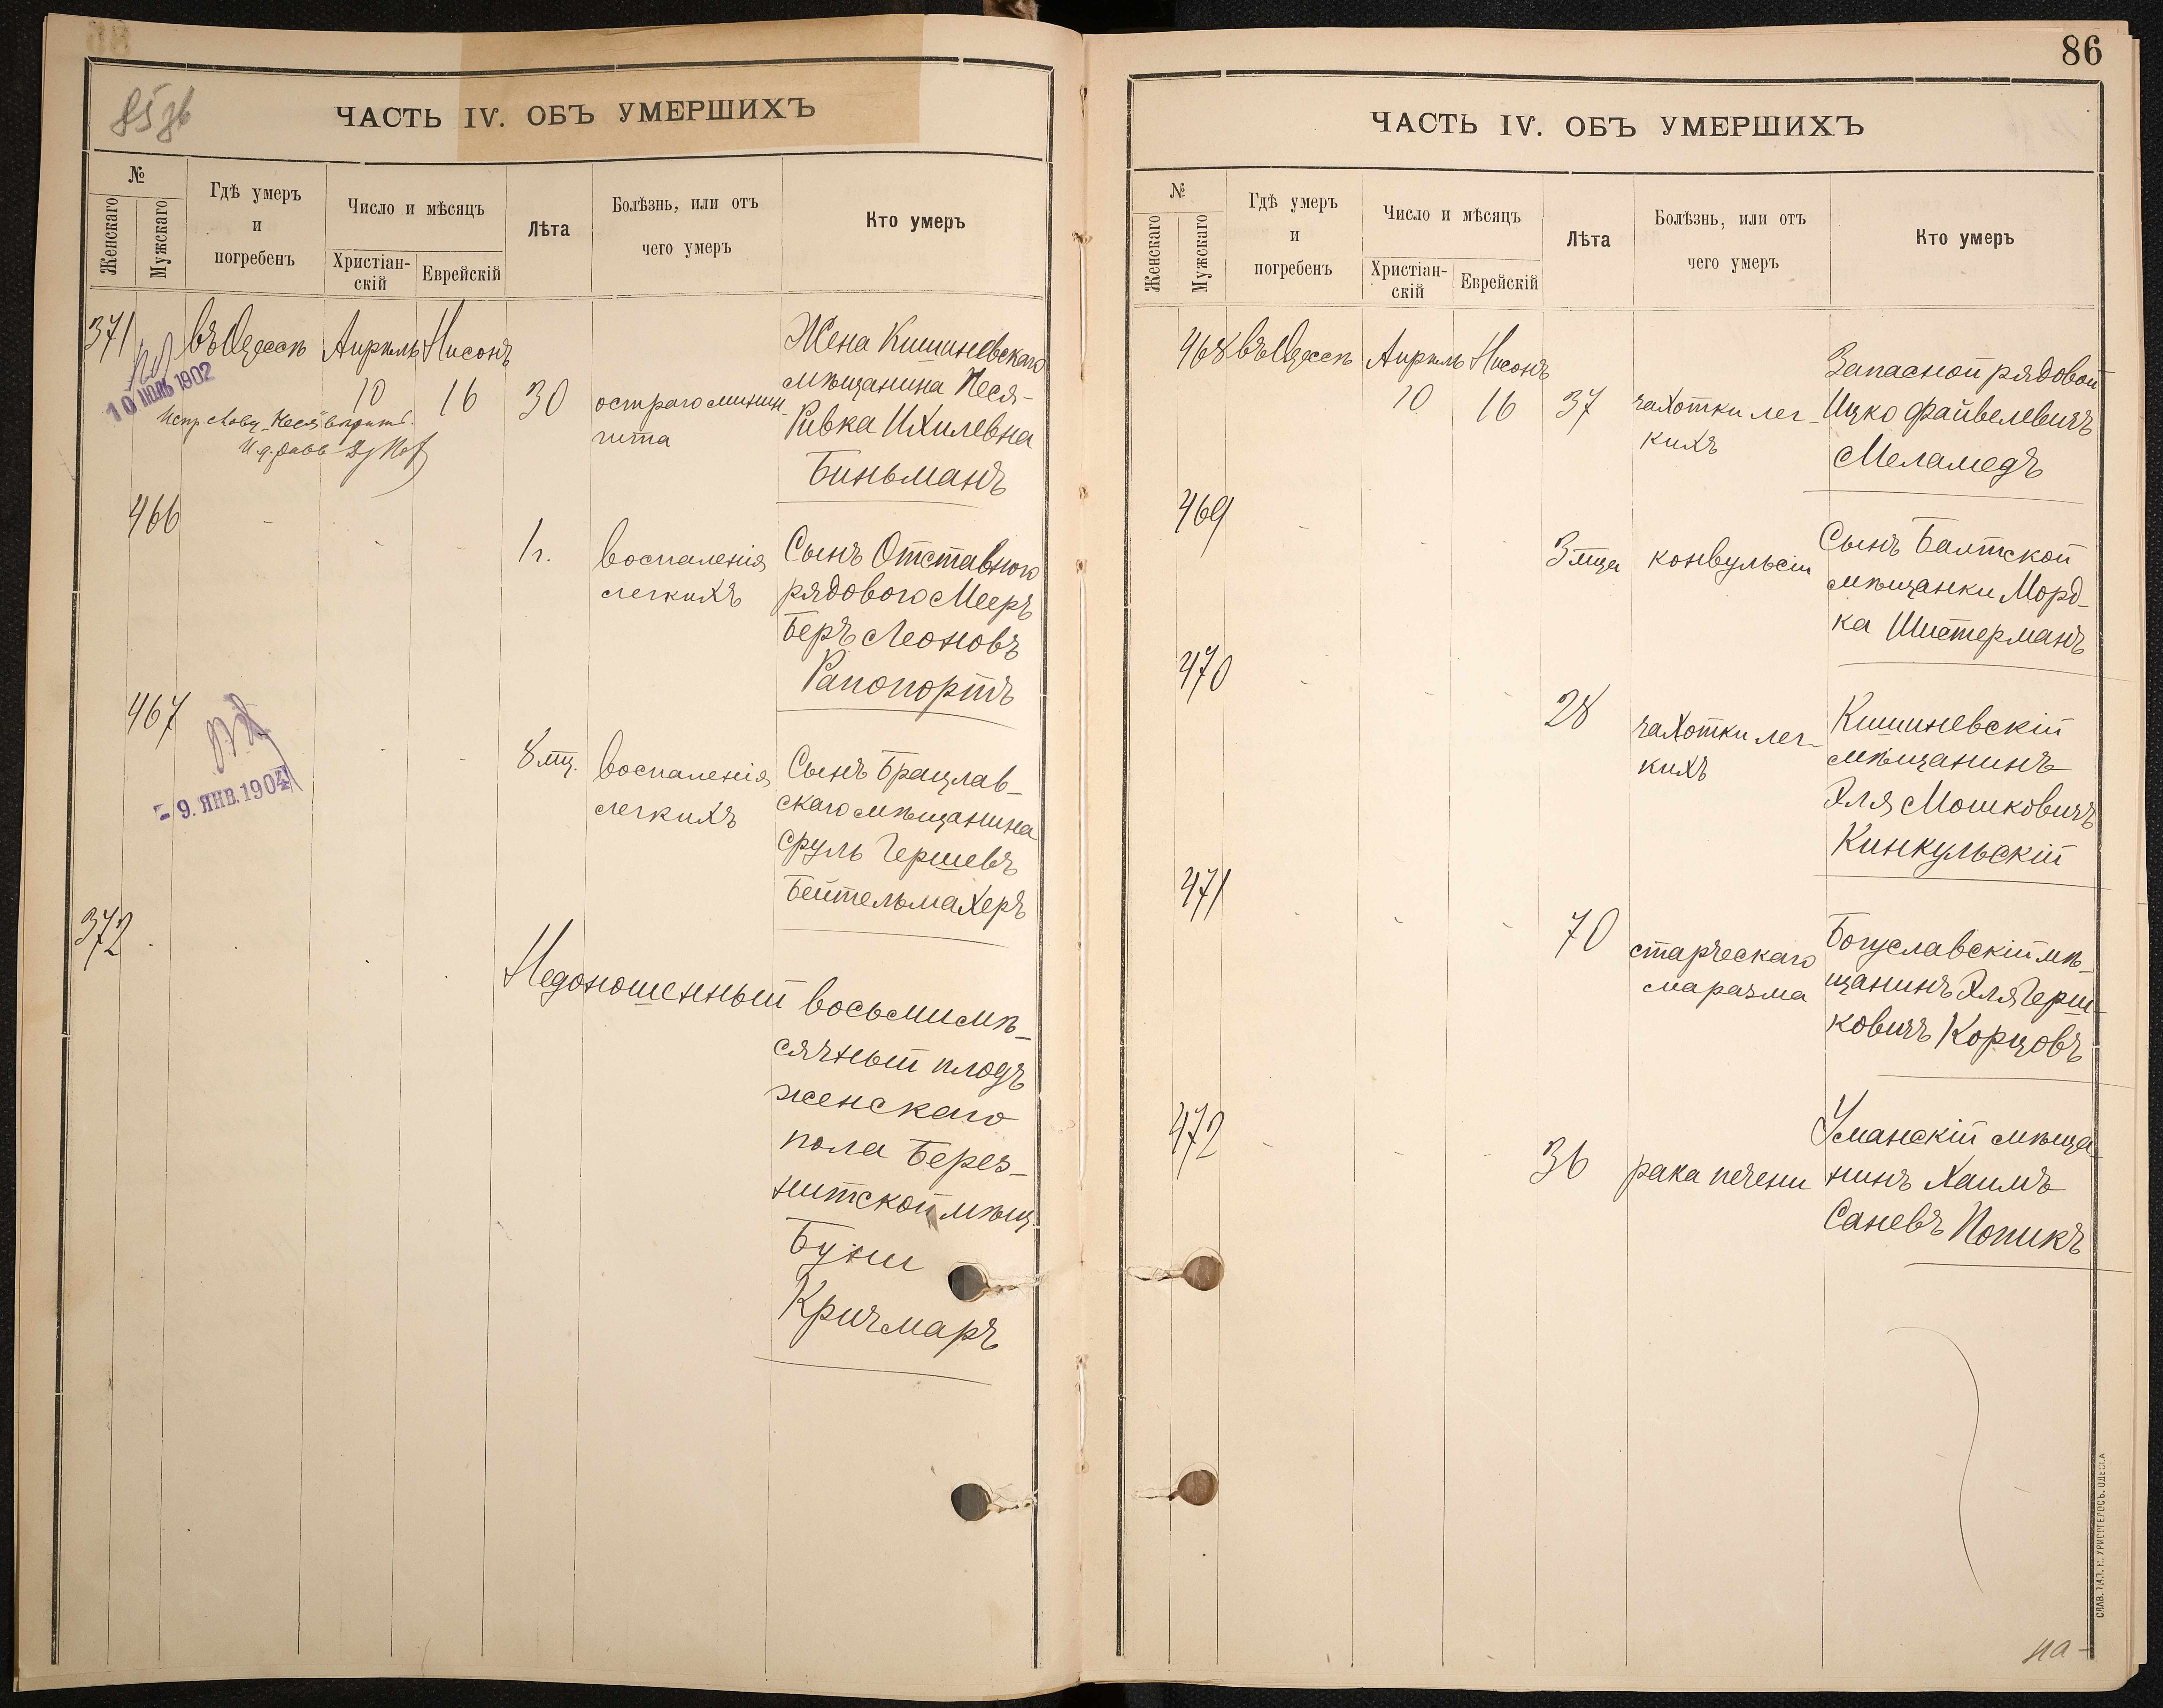 85 зв
ЧАСТЬ IV. ОБЪ УМЕРШИХЪ
№
Женскаго
Мужскаго
Гдѣ умеръ
и
погребенъ
Число и мѣсяцъ
Христіан-
скій
Еврейскій
Лѣта
Болѣзнь, или отъ
чего умеръ
Кто умеръ
371 въ Одессѣ Апрѣль Нисонъ
10 16 30 остраго минин-
гита
Жена Кишиневскаго
мѣщанина Неся-
Ривка Ихилевна
Биньманъ
10 ІЮЛЬ 1902
466
1 г. воспаленія
легкихъ
Сынъ Отставного
рядового Мееръ
Беръ Леоновъ
Рапопортъ
467
8 мц. воспаленія
легкихъ
Сынъ Брацлав-
скаго мѣщанина
Сруль Гершевъ
Бейтельмахеръ
- 9. ЯНВ. 1904
372
Недоношенный восьмимѣ-
сячный плодъ
женскаго
пола Берез-
нитской мѣщ
Буни
Кричмаръ
86
ЧАСТЬ IV. ОБЪ УМЕРШИХЪ
№
Женскаго
Мужскаго
Гдѣ умеръ
и
погребенъ
Число и мѣсяцъ
Христіан-
скій
Еврейскій
Лѣта
Болѣзнь, или отъ
чего умеръ
Кто умеръ
468 въ Одессѣ Апрѣль Нисонъ
10 16 37 чахотки лег-
кихъ
Запасной рядовой
Ицко Файвелевичъ
Меламедъ
469
3 мца конвульсіи
Сынъ Балтской
мѣщанки Морд-
ка Шистерманъ
470
28 чахотки лег-
кихъ
Кишиневскій
мѣщанинъ
Эля Мошковичъ
Кинкульскій
471
70 старческаго
маразма
Богуславскій мѣ-
щанинъ Эля Герш-
ковичъ Корцовъ
472
36 рака печени
Уманскій мѣща-
нинъ Хаимъ
Саневъ Попикъ
на-